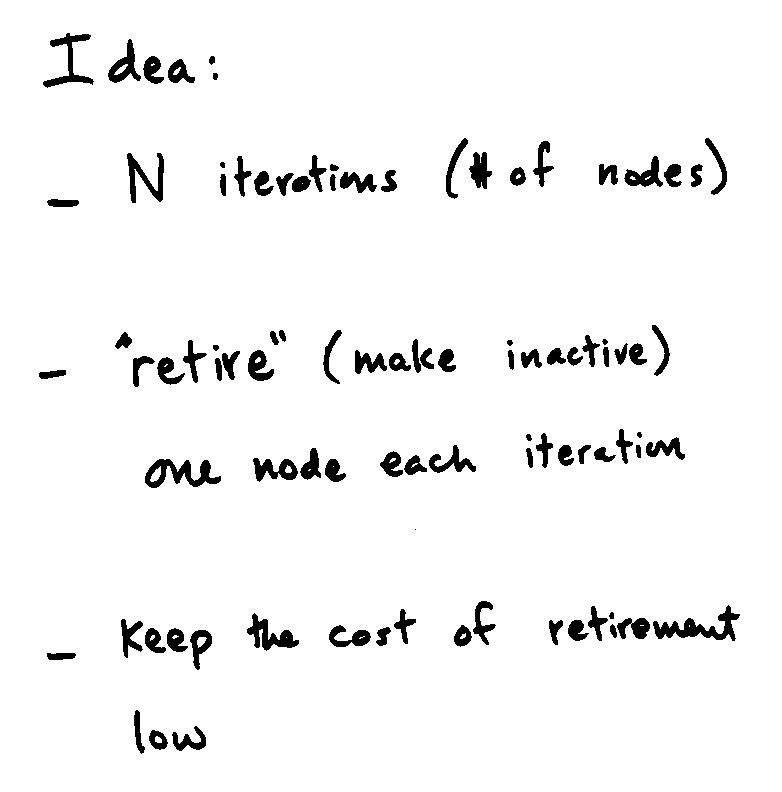 Idea:
- N iterations (# of nodes)
- "retire" (make inactive)
one node each iteration
- Keep the cost of retirement
low